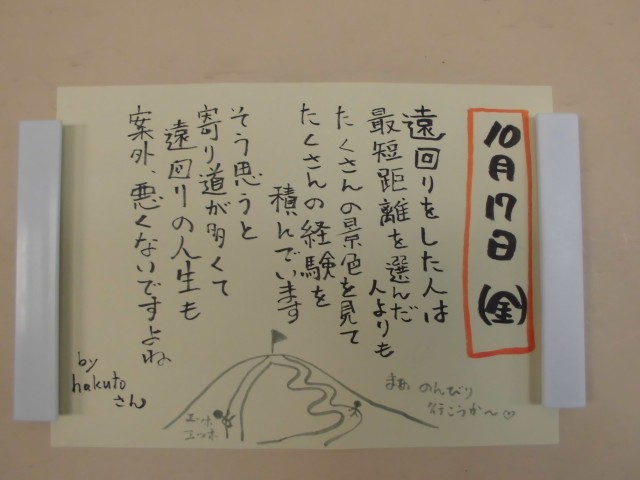 10月17日(金)
遠回りをした人は
最短距離を選んだ
人よりも
たくさんの景色を見て
たくさんの経験を
積んでいます
そう思うと
寄り道が多くて
遠回りの人生も
案外、悪くないですよね
by
hakuto
さん
エッホ
エッホ
まぁ のんびり
行こうか〜♡